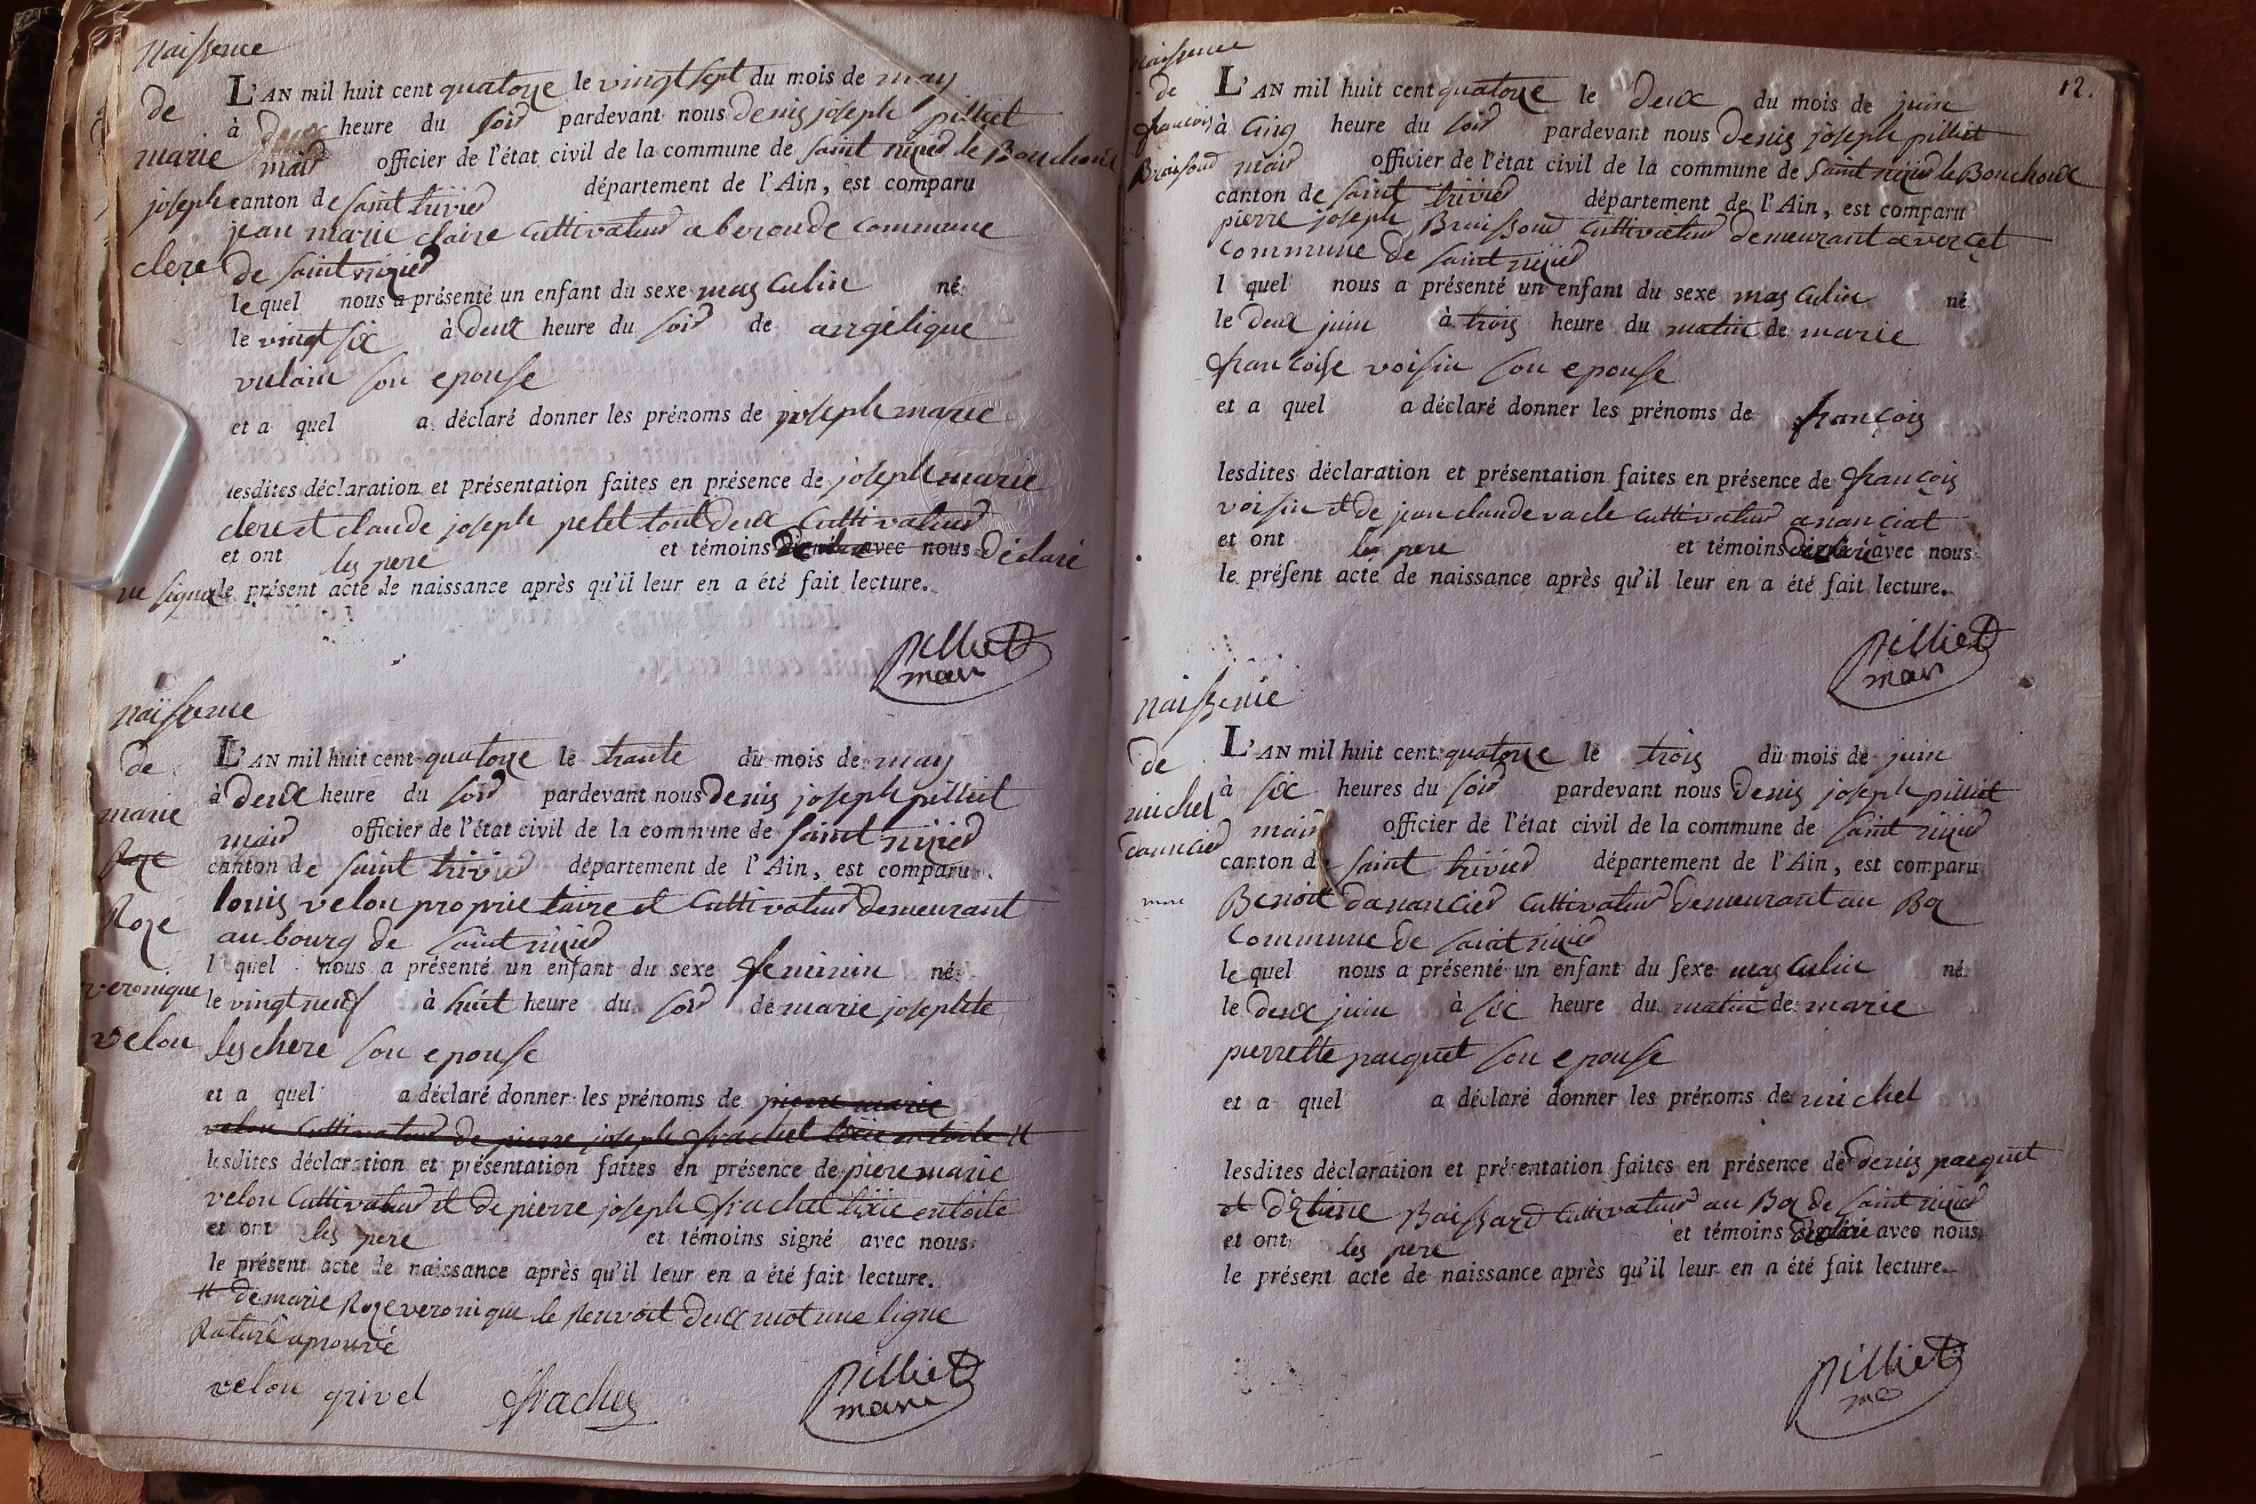 naissence
de
marie
joseph
clere
L'AN mil huit cent quatorze le vingt sept du mois de may
à deux heure du soir pardevant nous denis joseph pilliet
mair officier de l'état civil de la commune de saint nizier le Bouchoux
canton de saint trivier département de l'Ain, est comparu
jean marie claire cultivateur a beronde commune
de saint nizier
lequel nous a présenté un enfant du sexe masculin né
le vingt six à deux heure du soir de angelique
vulain son epouse
et a quel a déclaré donner les prénoms de joseph marie
lesdites déclaration et présentation faites en présence de joseph marie
clere et claude joseph petit tout deux cultivateur
et ont les pere et témoins avec nous déclaré
ne signer le présent acte de naissance après qu'il leur en a été fait lecture.
pilliet
mair
naissence
de
marie
Roze
Roze
veronique
velon
L'AN mil huit cent quatorze le trante du mois de may
à deux heure du soir pardevant nous denis joseph pilliet
mair officier de l'état civil de la commune de saint nizier
canton de saint trivier département de l'Ain, est comparu
louis velon proprietaire et cultivateur demeurant
au bourg de saint nizier
l quel nous a présenté un enfant du sexe feminin né
le vingt neuf à huit heure du soir de marie josephte
leschere son epouse
et a quel a déclaré donner les prénoms de pierre marie
velon cultivateur de pierre joseph frachet
lesdites déclaration et présentation faites en présence de piere marie
velon cultivateur et de pierre joseph frachet tixie en toile
et ont les pere et témoins signé avec nous
le présent acte de naissance après qu'il leur en a été fait lecture.
# de marie Roze veronique le renvoit deux mot une ligne
Raturé aprouvé
velon grivel frachet
pilliet
mair
12.
naissence
de
francois
Broissoud
L'AN mil huit cent quatorze le deux du mois de juin
à cinq heure du soir pardevant nous denis joseph pilliet
mair officier de l'état civil de la commune de saint nizier le Bouchoux
canton de saint trivier département de l'Ain, est comparu
pierre joseph Broissoud cultivateur demeurant a vercet
commune de saint nizier
l quel nous a présenté un enfant du sexe masculin né
le deux juin à trois heure du matin de marie
francoise voisin son epouse
et a quel a déclaré donner les prénoms de françois
lesdites déclaration et présentation faites en présence de françois
voisin et de jean claude vacle cultivateur a nanciat
et ont les pere et témoins avec nous
le présent acte de naissance après qu'il leur en a été fait lecture.
pilliet
mair
naissence
de
michel
danncier
L'AN mil huit cent quatorze le trois du mois de juin
à six heures du soir pardevant nous denis joseph pilliet
mair officier de l'état civil de la commune de saint nizier
canton de saint trivier département de l'Ain, est comparu
Benoit danancier cultivateur demeurant au Boz
commune de saint nizier
lequel nous a présenté un enfant du sexe masculin né
le deux juin à six heure du matin de marie
pierrette pacquet son epouse
et a quel a déclaré donner les prénoms de michel
lesdites déclaration et présentation faites en présence de denis pacquet
et d'Etiene Boissard cultivateur au Boz de saint nizier
et ont les pere et témoins avec nous
le présent acte de naissance après qu'il leur en a été fait lecture.
pilliet